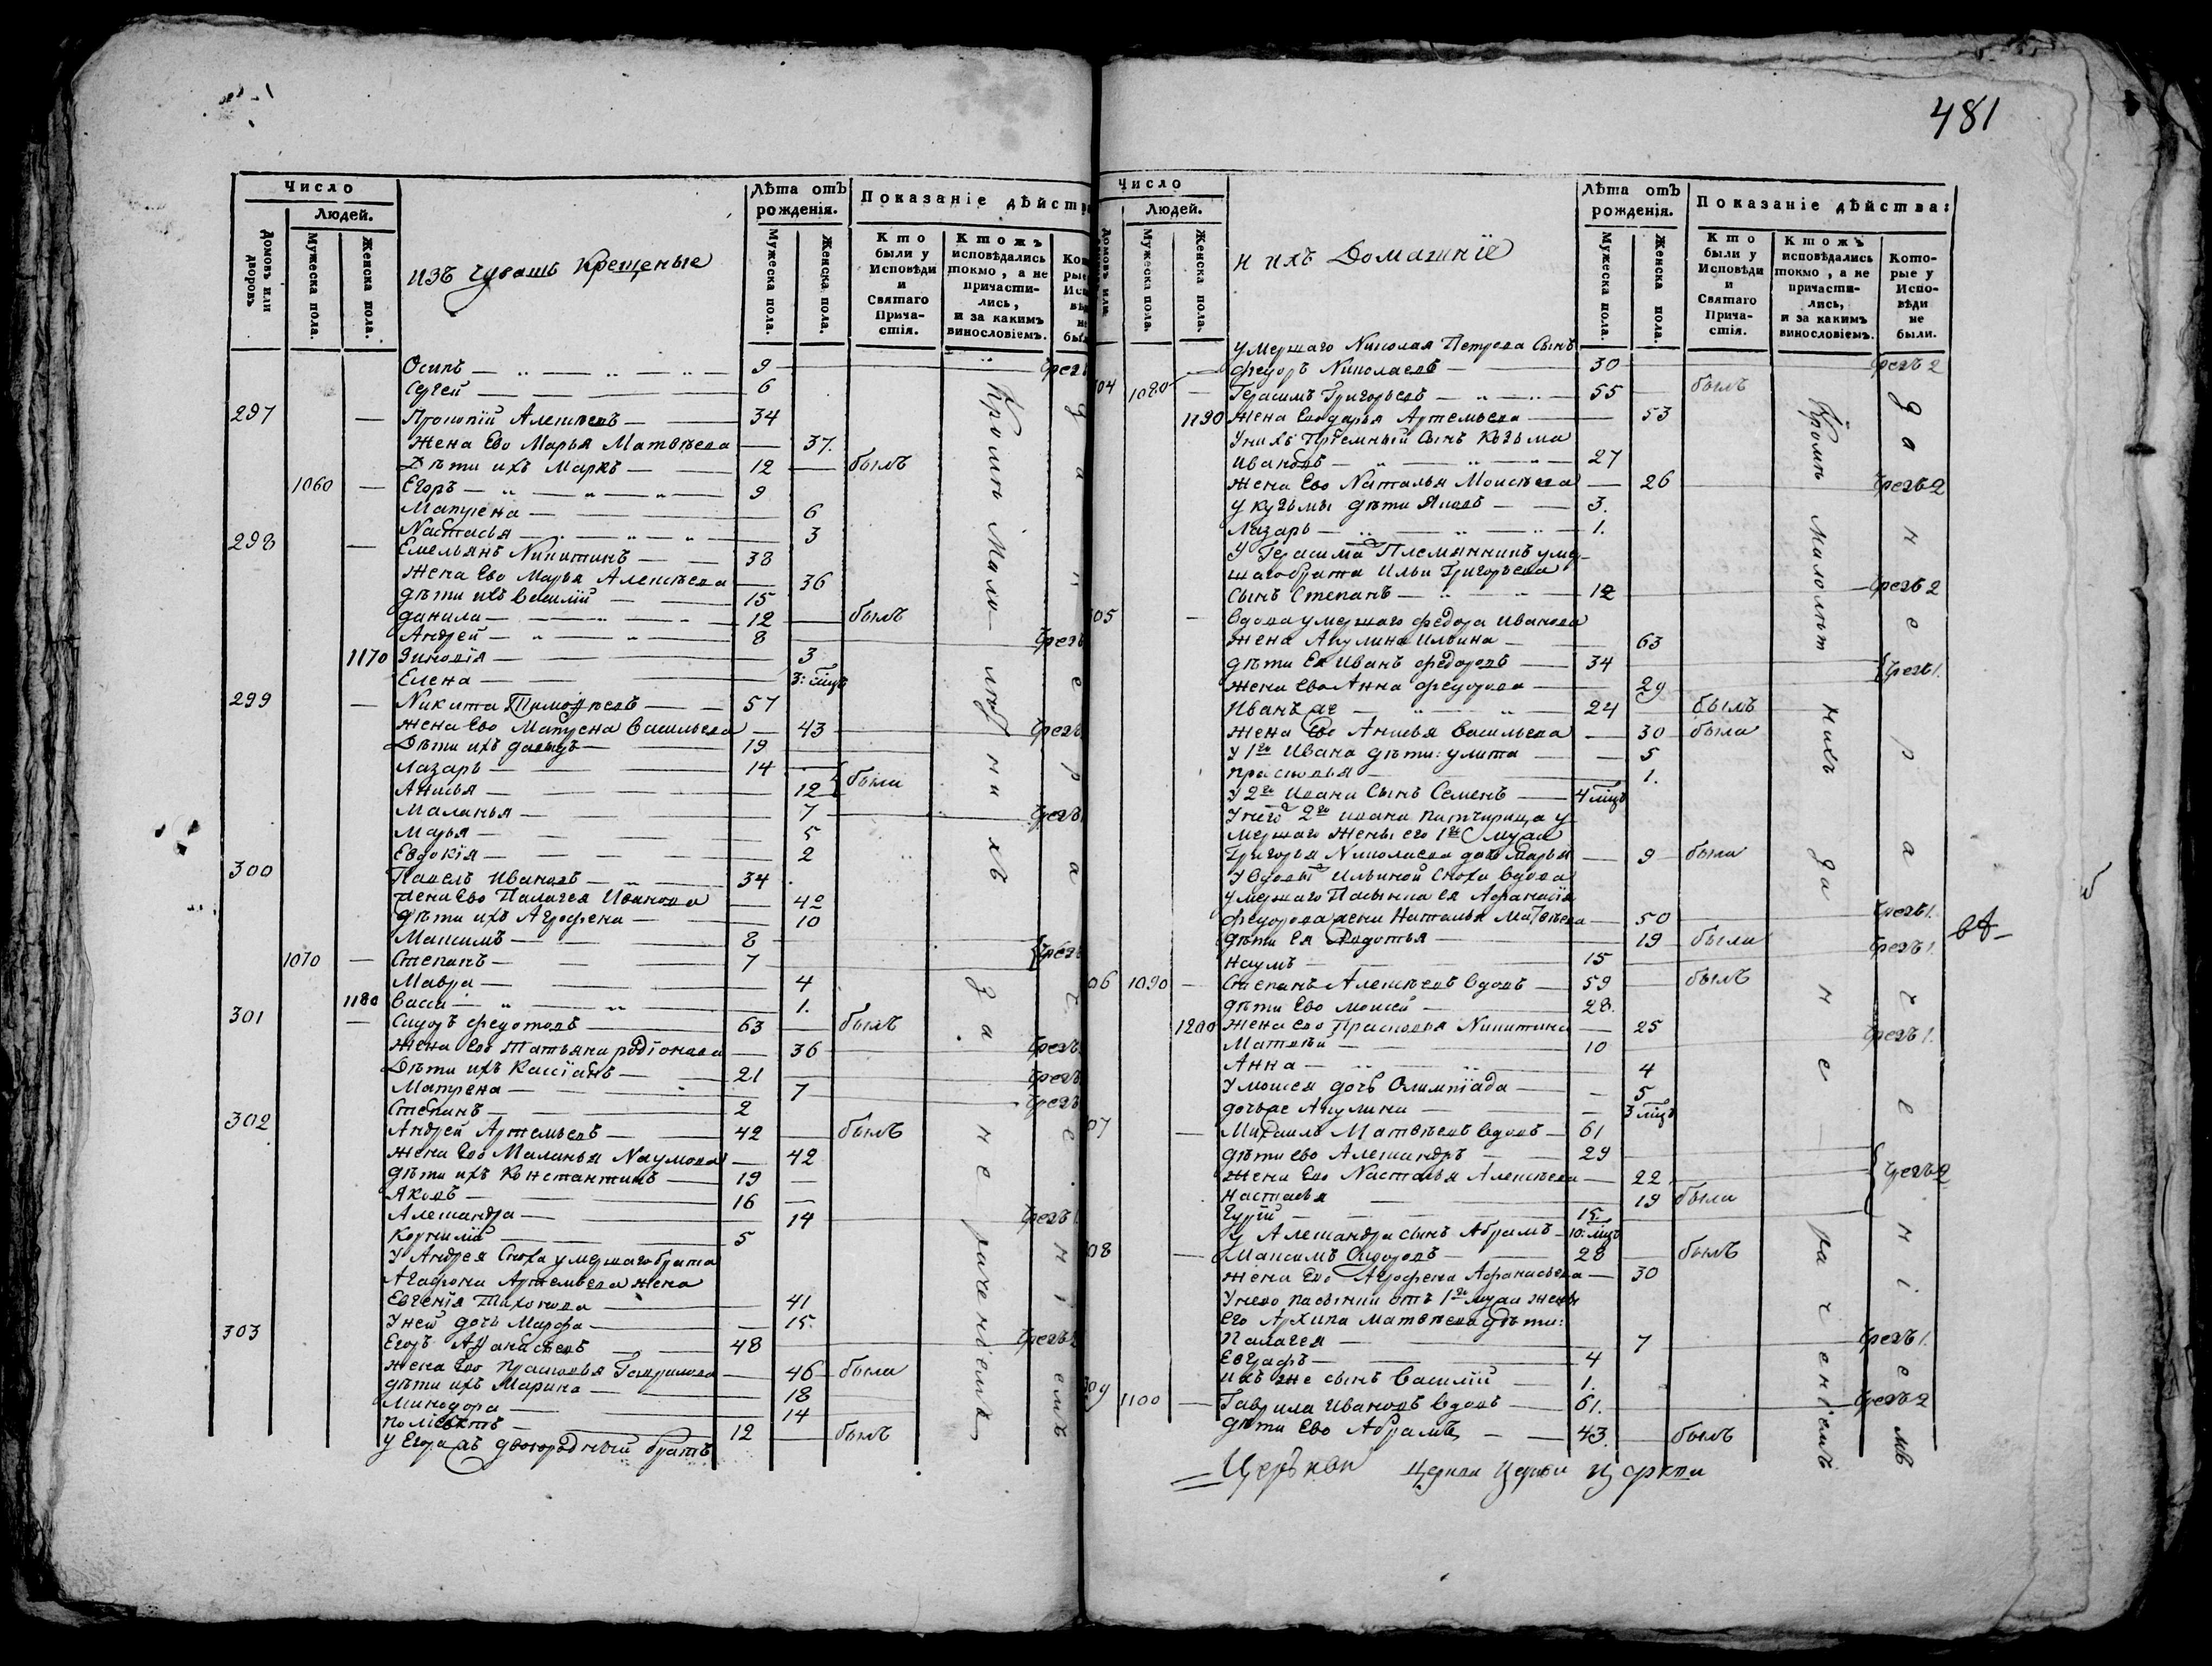 481
Число
Людей.
Домовъ или дворовъ
Мужеска пола.
Женска пола.
изъ чувашъ крещеные
Лѣта отъ рожденія.
Мужеска пола.
Женска пола.
Показаніе дѣйства
Кто были у Исповѣди и Святаго Причастія.
Ктожъ исповѣдались токмо, а не причастились, и за какимъ винословіемъ.
Осипъ 9
Сергей 6
297 Прокопій Алексѣевъ 34
Жена Ево Марья Матвѣева 37.
Дѣти ихъ Маркъ 12 былъ
1060 Егоръ 9
Матрена 6
Настасья 3
298 Емельянъ Никитинъ 38
Жена Ево Марья Алексѣева 36
дѣти ихъ Василій 15
данила 12 былъ
Андрей 8
1170 Зиновія 3
Елена 3: мцъ
299 Никита Тимофѣевъ 57
жена Ево Матрена Васильева 43
Дѣти ихъ давыдъ 19
Лазарь 14
Анисья 12 были
Маланья 7
Марья 5
Евдокія 2
300 Павелъ Ивановъ 34
жена Ево Палагея Иванова 42
дѣти ихъ Агрофена 10
Максимъ 8
1070 Степанъ 7
Мавра 4
1180 Васса 1.
301 Сидоръ Федотовъ 63 былъ
жена Ево Татьяна родіонова 36
Дѣти ихъ Кассіанъ 21
Матрена 7
Степанъ 2
302 Андрей Артемьевъ 42 былъ
жена Ево Маланья Наумова 42
дѣти ихъ Константинъ 19
Яковъ 16
Александра 14
Корнилій 5
У Андрея Сноха умершаго брата
Агафона Артемьева жена
Евгенія Тихонова 41
У ней дочь Марфа 15.
303 Егоръ Афанасьевъ 48
жена Ево Прасковья Гаврилова 46 была
дѣти ихъ Марина 18
Минодора 14
12 былъ
у Егора жъ двоюродный братъ
Кромѣ Мало-лѣт нихъ
да не раченіемъ
Число
Людей.
Домовъ или
Мужеска пола.
Женска пола.
и ихъ Домашніе
Лѣта отъ рожденія.
Мужеска пола.
Женска пола.
Показаніе дѣйства:
Кто были у Исповѣди и Святаго Причастія.
Ктожъ исповѣдались токмо, а не причастились, и за какимъ винословіемъ.
Которые у Исповѣди не были.
умершаго Николая Петрова Сынъ
Федоръ Николаевъ 30 чрезъ 2
04 1080 Герасимъ Григорьевъ 55 былъ
1190 жена Евдокья Артемьева 53
У нихъ Пріемный Сынъ Козьма
Ивановъ 27
жена Ево Наталья Моисѣева 26 чрезъ 2
у кузьмы дѣти Яковъ 3.
Лазарь 1.
У Герасима Племянникъ умер-
шаго брата Ильи Григорьева
Сынъ Степанъ 12 чрезъ 2
05 Вдова умершаго Федора Иванова
жена Акулина Ильина 63
дѣти Ея Иванъ Федоровъ 34 чрезъ 1.
жена Ево Анна Федорова 29
Иванъ же 24 былъ
жена Ево Анисья Васильева 30 была
У 1го Ивана дѣти: улита 5
прасковья 1.
У 2го Ивана Сынъ Семенъ 4 мцъ
У него 2го Ивана падчирица у
мершаго жены его 1го мужа
Григорья Николаева дочь Марья 9 была
У вдовы Ильиной Сноха вдова
умершаго Пасынка ея Афанасія
Федорова жена Наталья Матвѣева 50 чрезъ 1.
дѣти Ея Федотья 19 была
Наумъ 15 чрезъ 1
06 1090 Степанъ Алексѣевъ вдовъ 59 былъ
дѣти Ево Моисей 28.
1200 Жена ево Прасковья Никитина 25 чрезъ 1.
Матвѣй 10
Анна 4
У моисея дочь Олимпіада 5
дочь же Акулина 3 мцъ
07 Михаилъ Матвѣевъ вдовъ 61
дѣти ево Александръ 29
жена Ево Настасья Алексѣева 22 чрезъ 2
Настасья 19 была
Гурій 15.
У Александра сынъ Абрамъ 10: мцъ
08 Максимъ Сидоровъ 28 былъ
жена Ево Агрофена Афанасьева 30
У нево пасынки отъ 1го мужа жены
Его Архипа Матвѣева дѣти:
Палагея 7 чрезъ 1.
Евграфъ 4
ихъ же сынъ Василій 1.
09 1100 Гаврила Ивановъ вдовъ 61. чрезъ 2
дѣти Ево Абрамъ 43. былъ
Кромѣ малолѣт нихъ да не раченіемъ
да не раченіемъ
Церькви Церкви Церкви Церкви